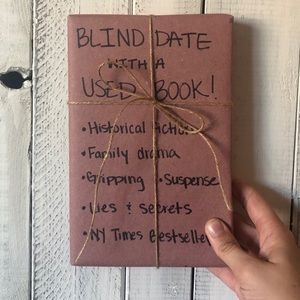 BLIND DATE
WITH A
USED BOOK!
• Historical Fiction
• Family drama
• Gripping • Suspense
• Lies & Secrets
• NY Times Bestseller